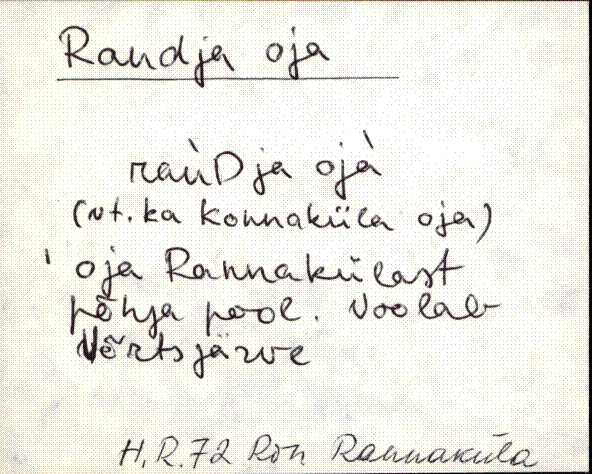 Randja oja
ràùDja ojà
(vt. ka Konnaküla oja)
' oja Rannakülast
põhja pool. Voolab
Võrtsjärve
H.R.72 Rõn Rannaküla